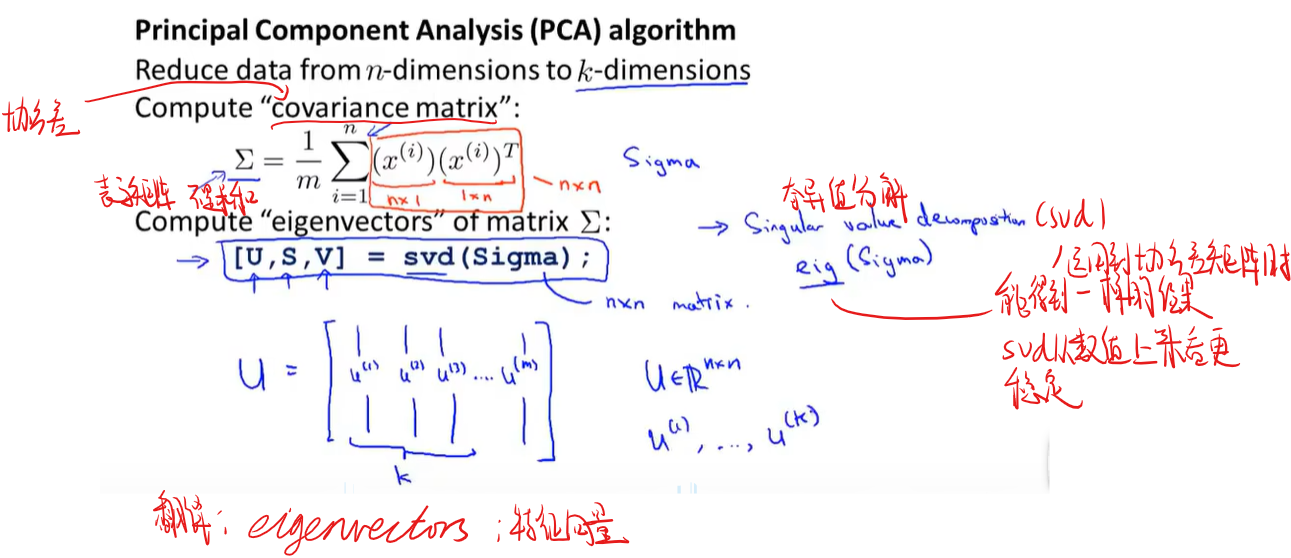 Principal Component Analysis (PCA) algorithm
Reduce data from n-dimensions to k-dimensions
Compute “covariance matrix”:
协方差
Σ = 1/m ∑_{i=1}^{n} (x^{(i)})(x^{(i)})^T
n×1 1×n
n×n
Sigma
表示矩阵 不是求和
Compute “eigenvectors” of matrix Σ:
奇异值分解
→ Singular value decomposition (svd)
→ [U,S,V] = svd(Sigma);
eig (Sigma)
n×n matrix.
运用到协方差矩阵时
能得到一样的结果
svd从数值上来看更
稳定
U = [ u^{(1)} u^{(2)} u^{(3)} .... u^{(m)} ]
k
U∈ℝ^{n×n}
u^{(1)}, ..., u^{(k)}
翻译: eigenvectors ;特征向量